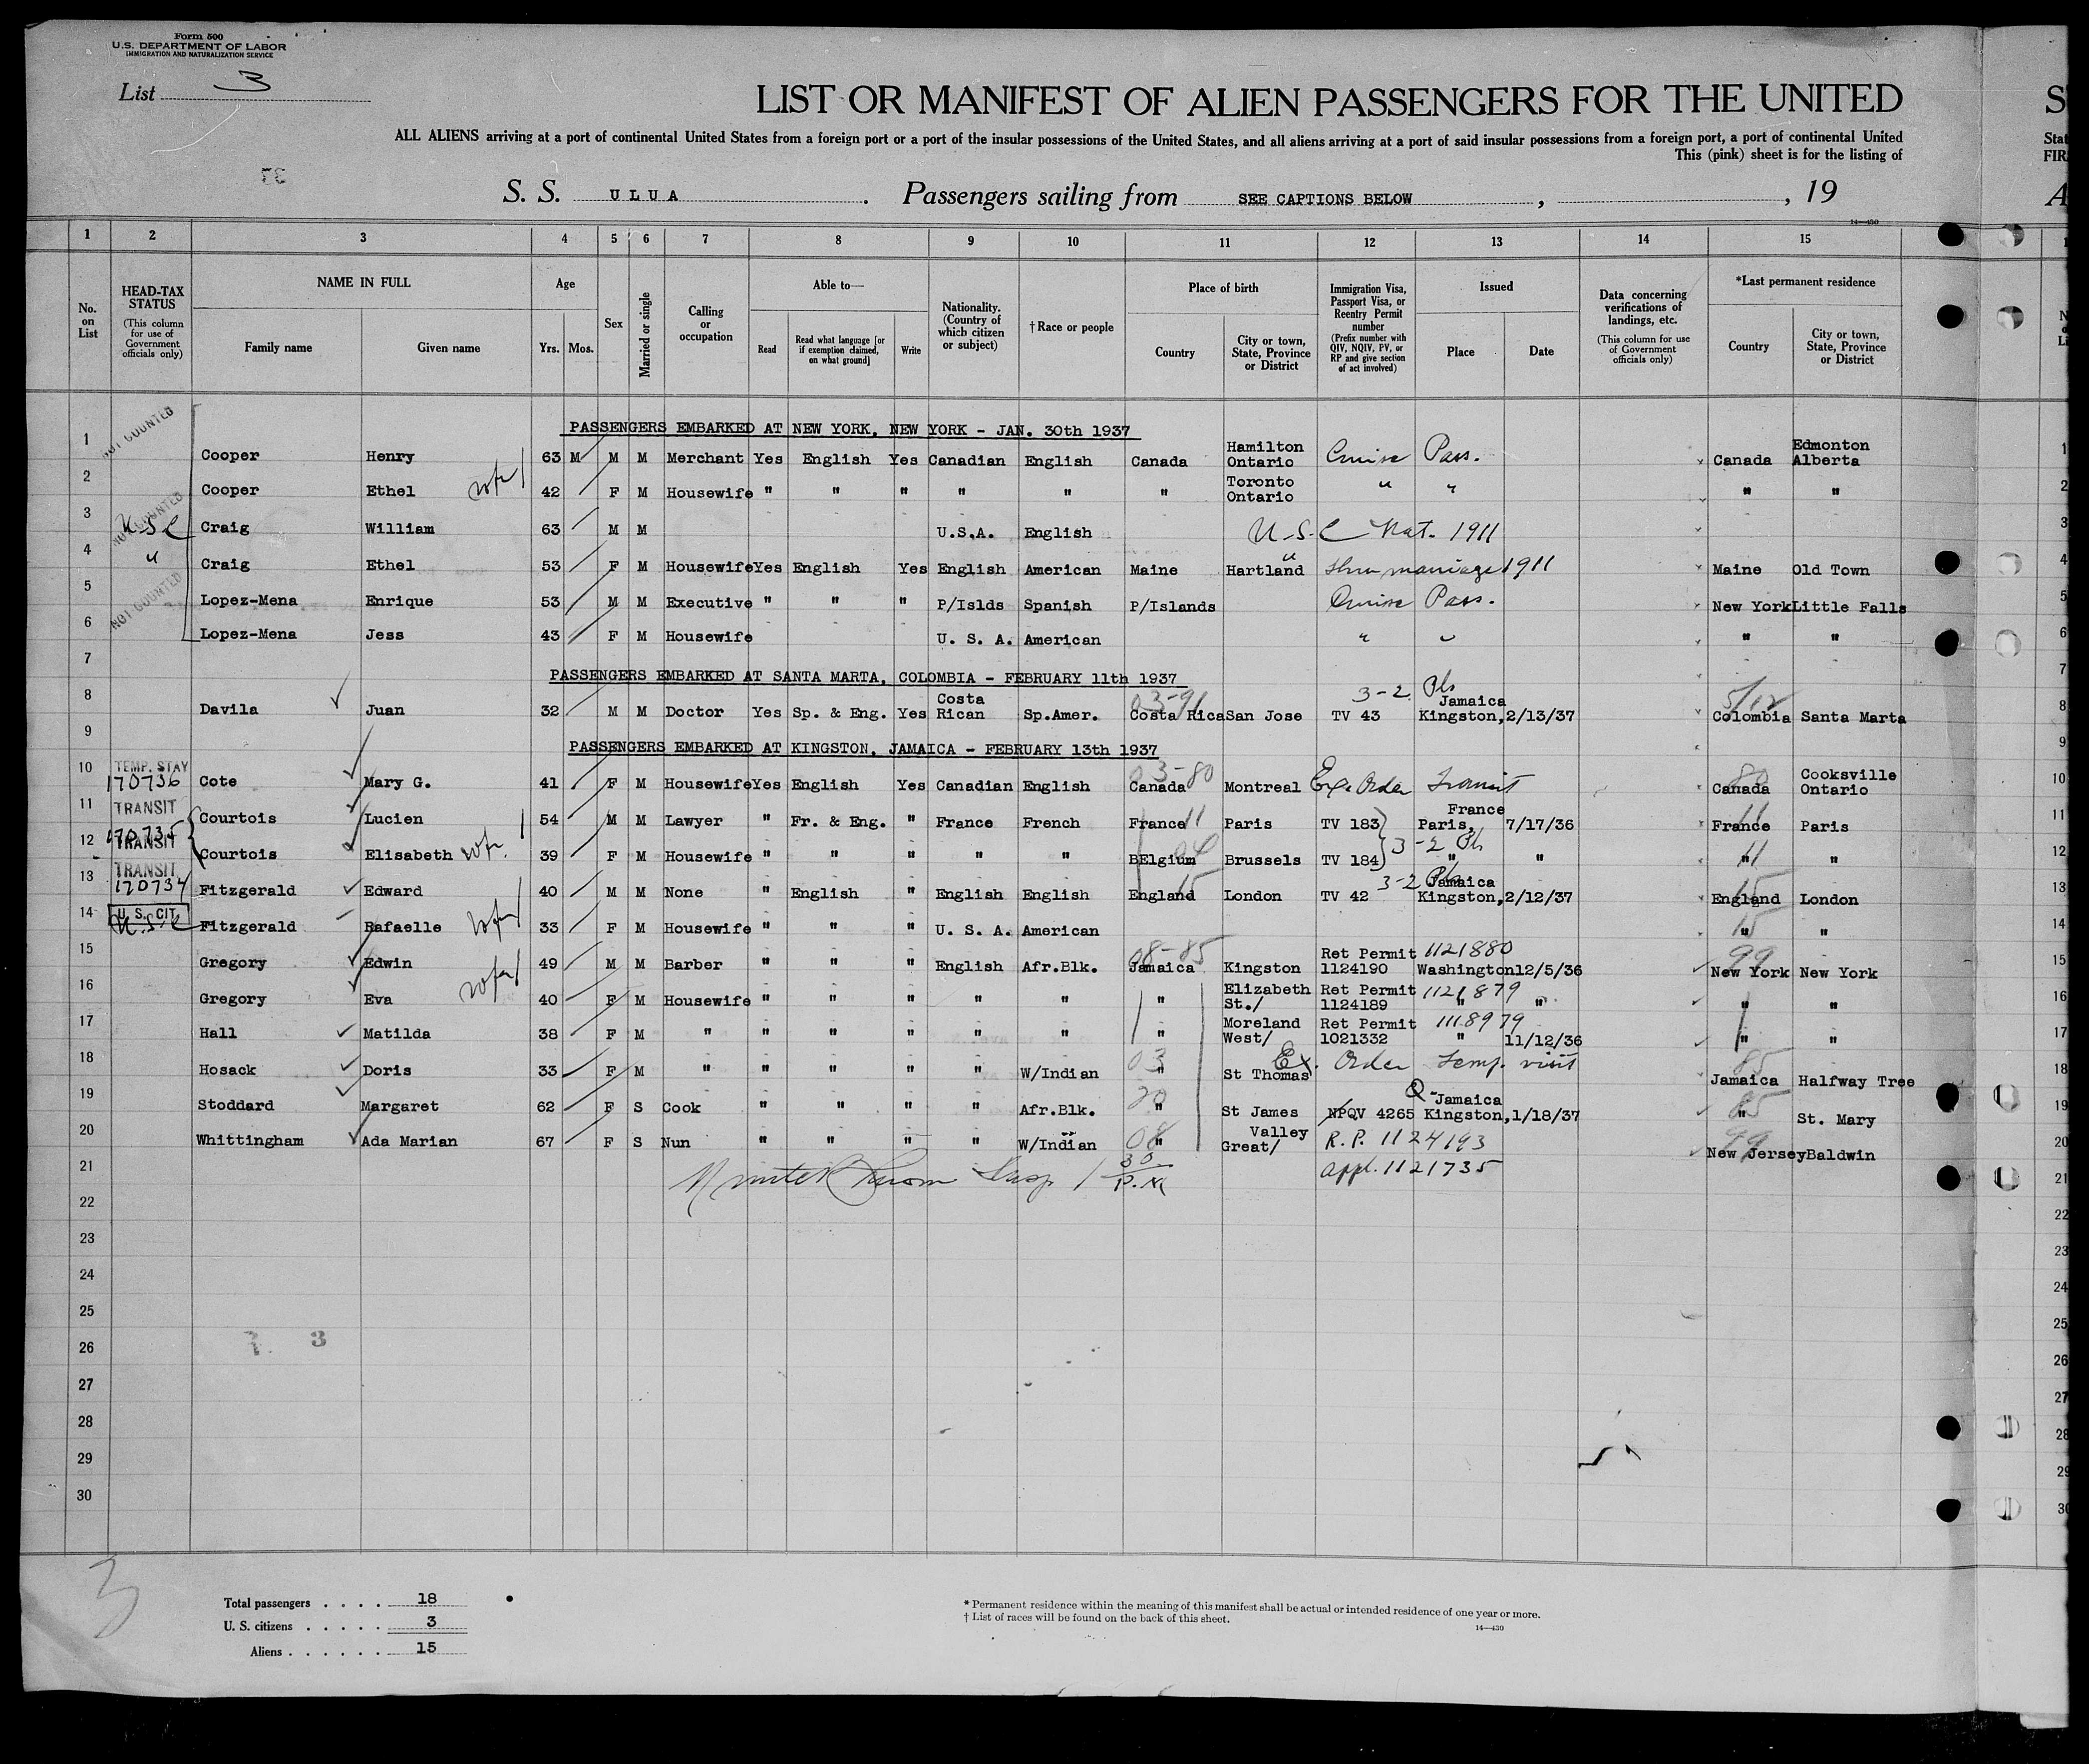 Form 500
U.S. DEPARTMENT OF LABOR
IMMIGRATION AND NATURALIZATION SERVICE
List 3
LIST OR MANIFEST OF ALIEN PASSENGERS FOR THE UNITED
S
ALL ALIENS arriving at a port of continental United States from a foreign port or a port of the insular possessions of the United States, and all aliens arriving at a port of said insular possessions from a foreign port, a port of continental United
Stat
This (pink) sheet is for the listing of
FIR
S. S. ULUA. Passengers sailing from SEE CAPTIONS BELOW, , 19
A
14—430
1 2 3 4 5 6 7 8 9 10 11 12 13 14 15
No. on List
HEAD-TAX STATUS
(This column for use of Government officials only)
NAME IN FULL
Family name Given name
Age
Yrs. Mos.
Sex
Married or single
Calling or occupation
Able to—
Read
Read what language [or if exemption claimed, on what ground]
Write
Nationality. (Country of which citizen or subject)
†Race or people
Place of birth
Country
City or town, State, Province or District
Immigration Visa, Passport Visa, or Reentry Permit number
(Prefix number with QIV, NQIV, PV, or RP and give section of act involved)
Issued
Place Date
Data concerning verifications of landings, etc.
(This column for use of Government officials only)
*Last permanent residence
Country
City or town, State, Province or District
PASSENGERS EMBARKED AT NEW YORK, NEW YORK - JAN. 30th 1937
1 NOT COUNTED Cooper Henry 63 M M M Merchant Yes English Yes Canadian English Canada Hamilton Ontario Cruise Pass. Canada Edmonton Alberta
2 Cooper Ethel wfe 42 F M Housewife " " " " " " Toronto Ontario " " " "
3 NOT COUNTED U.S.C Craig William 63 M M U.S.A. English U.S.C Nat. 1911
4 " Craig Ethel 53 F M Housewife Yes English Yes English American Maine Hartland " thru marriage 1911 Maine Old Town
5 NOT COUNTED Lopez-Mena Enrique 53 M M Executive " " " P/Islds Spanish P/Islands Cruise Pass. New York Little Falls
6 Lopez-Mena Jess 43 F M Housewife U. S. A. American " " " "
7 PASSENGERS EMBARKED AT SANTA MARTA, COLOMBIA - FEBRUARY 11th 1937
8 Davila Juan 32 M M Doctor Yes Sp. & Eng. Yes Costa Rican Sp.Amer. 03-91 Costa Rica San Jose 3-2 Pls TV 43 Jamaica Kingston, 2/13/37 Colombia Santa Marta
9 PASSENGERS EMBARKED AT KINGSTON, JAMAICA - FEBRUARY 13th 1937
10 TEMP. STAY 170736 Cote Mary G. 41 F M Housewife Yes English Yes Canadian English 03-80 Canada Montreal Ex. Order Transit 80 Canada Cooksville Ontario
11 TRANSIT Courtois Lucien 54 M M Lawyer " Fr. & Eng. " France French France 11 Paris TV 183 France Paris, 7/17/36 11 France Paris
12 170735 TRANSIT Courtois Elisabeth wfe. 39 F M Housewife " " " " " BElgium 04 Brussels TV 184 3-2 Pls " " 11 " "
13 TRANSIT 170734 Fitzgerald Edward 40 M M None " English " English English England 15 London TV 42 3-2 Pls Jamaica Kingston, 2/12/37 15 England London
14 U. S. CIT. U.S.C Fitzgerald Rafaelle wfe 33 F M Housewife " " " U. S. A. American 15 " "
15 Gregory Edwin 49 M M Barber " " " English Afr.Blk. 08-85 Jamaica Kingston Ret Permit 1124190 1121880 Washington 12/5/36 99 New York New York
16 Gregory Eva 40 F M Housewife " " " " " " Elizabeth St./ Ret Permit 1124189 1121879 " " " "
17 Hall Matilda 38 F M " " " " " " " Moreland West/ Ret Permit 1021332 1118979 " 11/12/36 " "
18 Hosack Doris 33 F M " " " " " W/Indian 03 " St Thomas Ex. Order Temp. visit 85 Jamaica Halfway Tree
19 Stoddard Margaret 62 F S Cook " " " " Afr.Blk. 20 " St James NPQV 4265 Q-Jamaica Kingston, 1/18/37 85 " St. Mary
20 Whittingham Ada Marian 67 F S Nun " " " " W/Indian 08 " Valley Great/ R.P. 1124193 99 New Jersey Baldwin
21 1 30 P.M appl. 1121735
22
23
24
25
26 3
27
28
29
30
3
Total passengers . . . . 18
U. S. citizens . . . . . 3
Aliens . . . . . . 15
* Permanent residence within the meaning of this manifest shall be actual or intended residence of one year or more.
† List of races will be found on the back of this sheet.
14—430